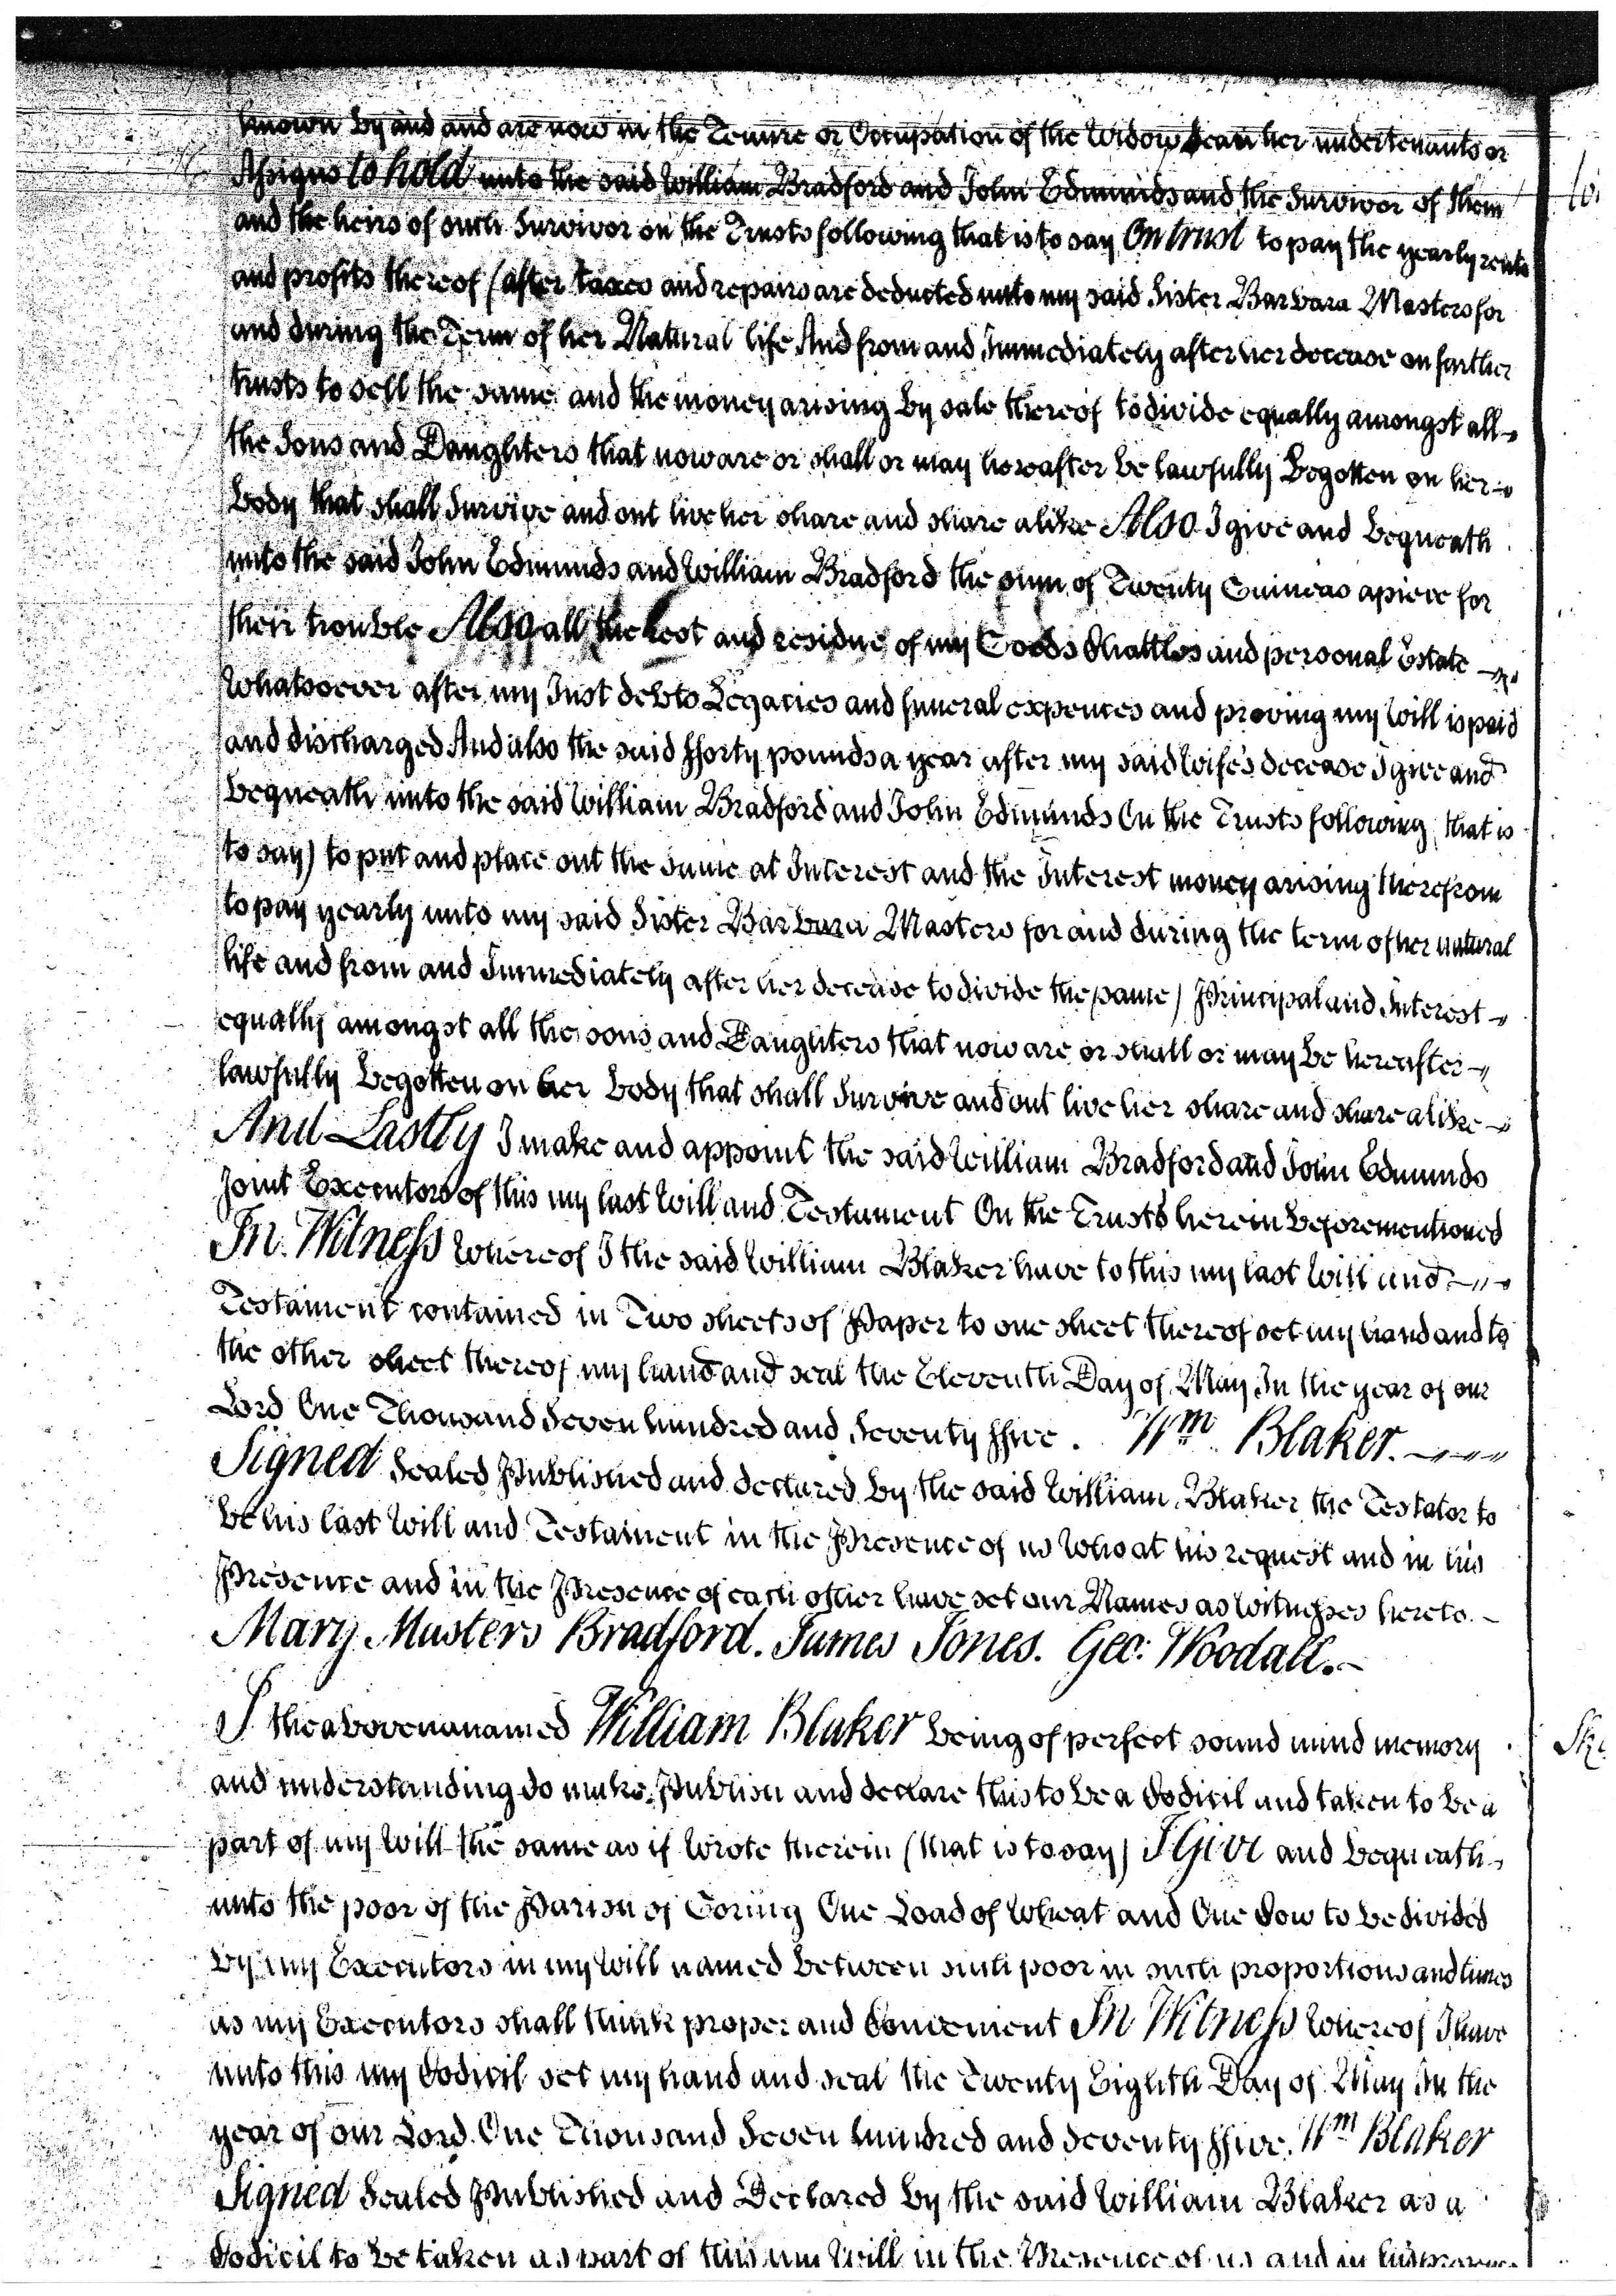 known by and and are now in the Tenure or Occupation of the Widow Dean her undertenants or
Assigns to hold unto the said William Bradford and John Edmunds and the Survivor of them
and the heirs of such Survivor on the Trusts following that is to say On trust to pay the yearly rents
and profits thereof (after taxes and repairs are deducted unto my said Sister Barbara Masters for
and during the Term of her Natural life And from and Immediately after her decease on farther
trusts to sell the same and the money arising by sale thereof to divide equally amongst all
the Sons and Daughters that now are or shall or may hereafter be lawfully Begotten on her
Body that shall Survive and out live her share and share alike Also I give and Bequeath
unto the said John Edmunds and William Bradford the sum of Twenty Guineas apiece for
their trouble Also all the Rest and residue of my Goods Chattles and personal Estate
Whatsoever after my Just debts Legacies and funeral expences and proving my Will is paid
and discharged And also the said fforty pounds a year after my said Wife's decease I give and
Bequeath unto the said William Bradford and John Edmunds On the Trusts following that is
to say) to put and place out the same at Interest and the Interest money arising therefrom
to pay yearly unto my said Sister Barbara Masters for and during the term of her natural
life and from and Immediately after her decease to divide the same) Principal and Interest
equally amongst all the sons and Daughters that now are or shall or may be hereafter
lawfully Begotten on her Body that shall Survive and out live her share and share alike
And Lastly I make and appoint the said William Bradford and John Edmunds
Joint Executors of this my last Will and Testament On the Trusts herein beforementioned
In Witness Whereof I the said William Blaker have to this my last Will and
Testament contained in Two sheets of Paper to one sheet thereof set my hand and to
the other sheet thereof my hand and seal the Eleventh Day of May In the year of our
Lord One Thousand Seven hundred and Seventy ffive. Wm Blaker.
Signed Sealed Published and declared By the said William Blaker the Testator to
be his last Will and Testament in the Presence of us Who at his request and in his
Presence and in the Presence of each other have set our Names as Witnesses hereto.
Mary Masters Bradford. James Jones. Geo: Woodall.
I the abovenanamed William Blaker being of perfect sound mind memory
and understanding do make Publish and declare this to be a Codicil and taken to be a
part of my Will the same as if Wrote therein (that is to say) I Give and bequeath
unto the poor of the Parish of Goring One Load of Wheat and One Cow to be divided
By my Executors in my Will named between such poor in such proportions and times
as my Executors shall think proper and Convenient In Witness Whereof I have
unto this my Codicil set my hand and seal the Twenty Eighth Day of May In the
year of our Lord One Thousand Seven hundred and Seventy ffive. Wm Blaker
Signed Sealed Published and Declared By the said William Blaker as a
Codicil to be taken as part of this my Will in the Presence of us and in his presence